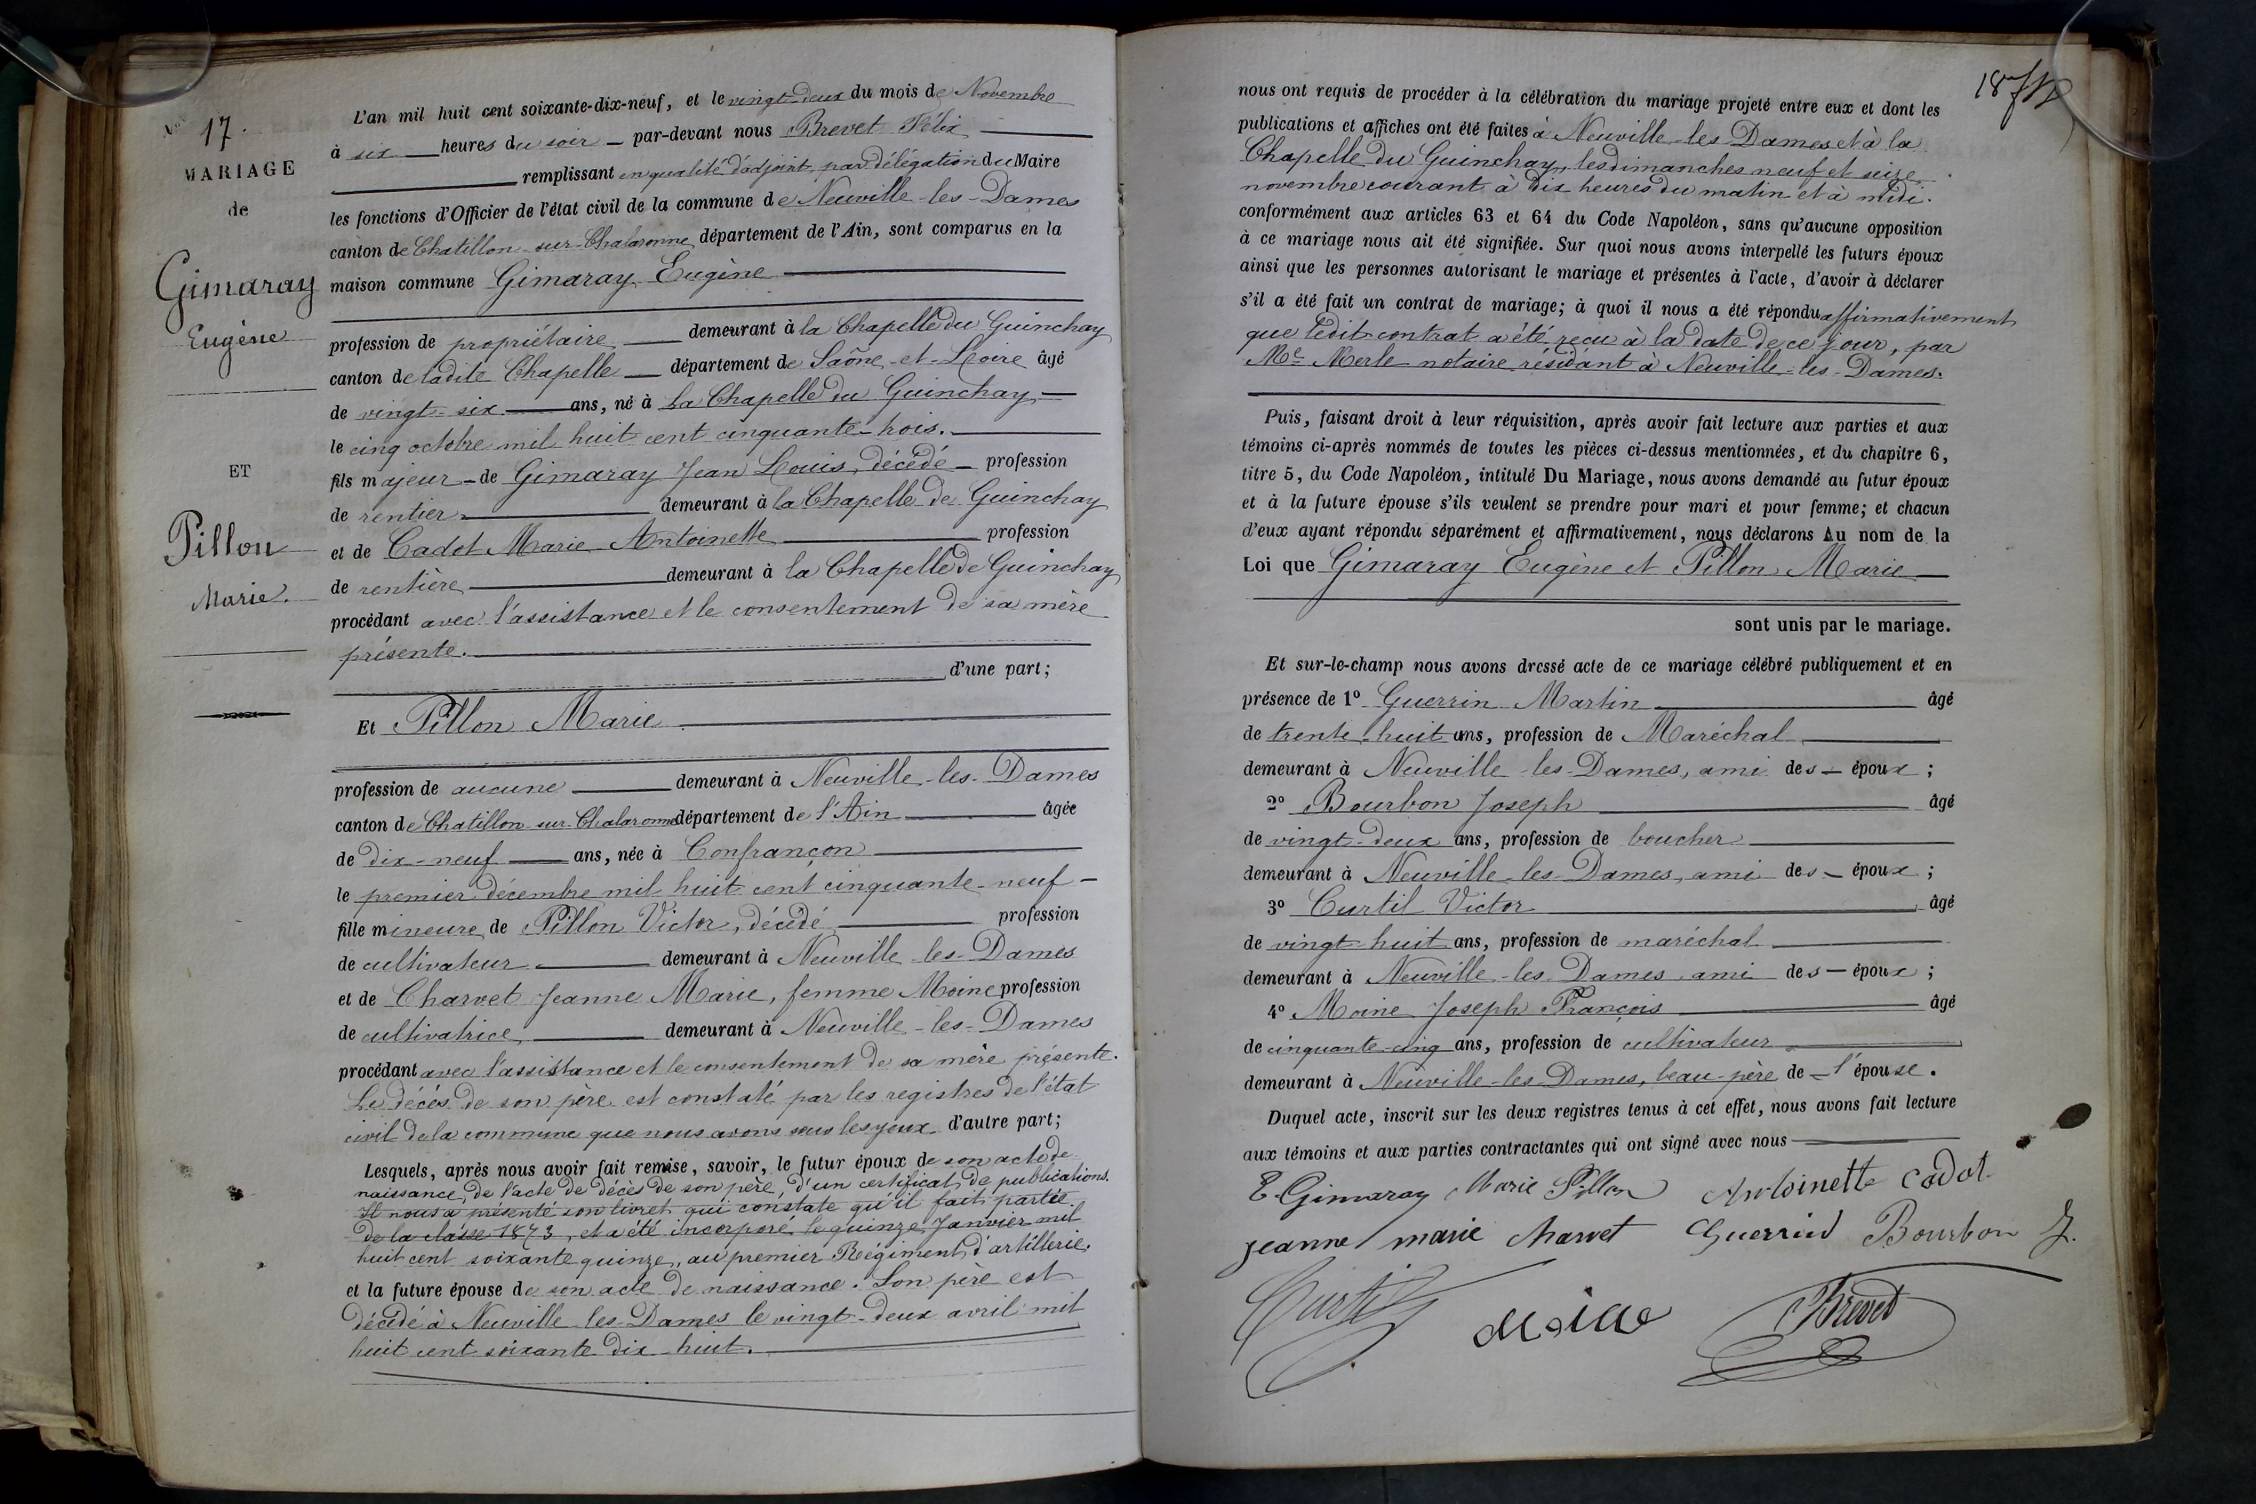 17.
MARIAGE
de
Gimaray
Eugène
ET
Pillon
Marie.
L'an mil huit cent soixante-dix-neuf, et le vingt-deux du mois de Novembre
à six heures du soir par-devant nous Brevet Félix
remplissant en qualité d'adjoint, par délégation du Maire
les fonctions d'Officier de l'état civil de la commune de Neuville-les-Dames
canton de Chatillon-sur-Chalaronne, département de l'Ain, sont comparus en la
maison commune Gimaray Eugène
profession de propriétaire demeurant à la Chapelle du Guinchay
canton de ladite Chapelle département de Saône-et-Loire âgé
de vingt-six ans, né à La Chapelle du Guinchay
le cinq octobre mil huit cent cinquante-trois.
fils majeur de Gimaray Jean Louis, décédé profession
de rentier demeurant à la Chapelle de Guinchay
et de Cadot Marie Antoinette profession
de rentière demeurant à la Chapelle de Guinchay
procédant avec l'assistance et le consentement de sa mère
présente.
d'une part;
Et Pillon Marie
profession de aucune demeurant à Neuville-les-Dames
canton de Chatillon-sur-Chalaronne département de l'Ain âgée
de dix-neuf ans, née à Confrançon
le premier décembre mil huit cent cinquante-neuf
fille mineure de Pillon Victor, décédé profession
de cultivateur demeurant à Neuville-les-Dames
et de Charvet Jeanne Marie, femme Moine profession
de cultivatrice demeurant à Neuville-les-Dames
procédant avec l'assistance et le consentement de sa mère présente.
Le décés de son père est constaté par les registres de l'état
civil de la commune que nous avons sous les yeux. d'autre part;
Lesquels, après nous avoir fait remise, savoir, le futur époux de son acte de
naissance, de l'acte de décès de son père, d'un certificat de publications.
Il nous a présenté son livret qui constate qu'il fait partie
de la classe 1873, et a été incorporé le quinze Janvier mil
huit cent soixante quinze, au premier Régiment d'artillerie.
et la future épouse de son acte de naissance. Son père est
décédé à Neuville-les-Dames le vingt-deux avril mil
huit cent soixante dix-huit.
nous ont requis de procéder à la célébration du mariage projeté entre eux et dont les
publications et affiches ont été faites à Neuville-les-Dames et à la
Chapelle du Guinchay, les dimanches neuf et seize
novembre courant à dix heures du matin et à midi.
conformément aux articles 63 et 64 du Code Napoléon, sans qu'aucune opposition
à ce mariage nous ait été signifiée. Sur quoi nous avons interpellé les futurs époux
ainsi que les personnes autorisant le mariage et présentes à l'acte, d'avoir à déclarer
s'il a été fait un contrat de mariage; à quoi il nous a été répondu affirmativement
que ledit contrat a été reçu à la date de ce jour, par
Me Merle notaire résidant à Neuville-les-Dames.
Puis, faisant droit à leur réquisition, après avoir fait lecture aux parties et aux
témoins ci-après nommés de toutes les pièces ci-dessus mentionnées, et du chapitre 6,
titre 5, du Code Napoléon, intitulé Du Mariage, nous avons demandé au futur époux
et à la future épouse s'ils veulent se prendre pour mari et pour femme; et chacun
d'eux ayant répondu séparément et affirmativement, nous déclarons Au nom de la
Loi que Gimaray Eugène et Pillon Marie
sont unis par le mariage.
Et sur-le-champ nous avons dressé acte de ce mariage célébré publiquement et en
présence de 1º Guerrin Martin âgé
de trente-huit ans, profession de Maréchal
demeurant à Neuville-les-Dames, ami des époux;
2º Bourbon Joseph âgé
de vingt-deux ans, profession de boucher
demeurant à Neuville-les-Dames, ami des époux;
3º Curtil Victor âgé
de vingt-huit ans, profession de maréchal
demeurant à Neuville-les-Dames ami des époux;
4º Moine Joseph François âgé
de cinquante-cinq ans, profession de cultivateur
demeurant à Neuville-les-Dames, beau-père de l'épouse.
Duquel acte, inscrit sur les deux registres tenus à cet effet, nous avons fait lecture
aux témoins et aux parties contractantes qui ont signé avec nous
E. Gimaray Marie Pillon Antoinette Cadot
jeanne marie charvet Guerrin Bourbon J.
Curtil Moine Brevet